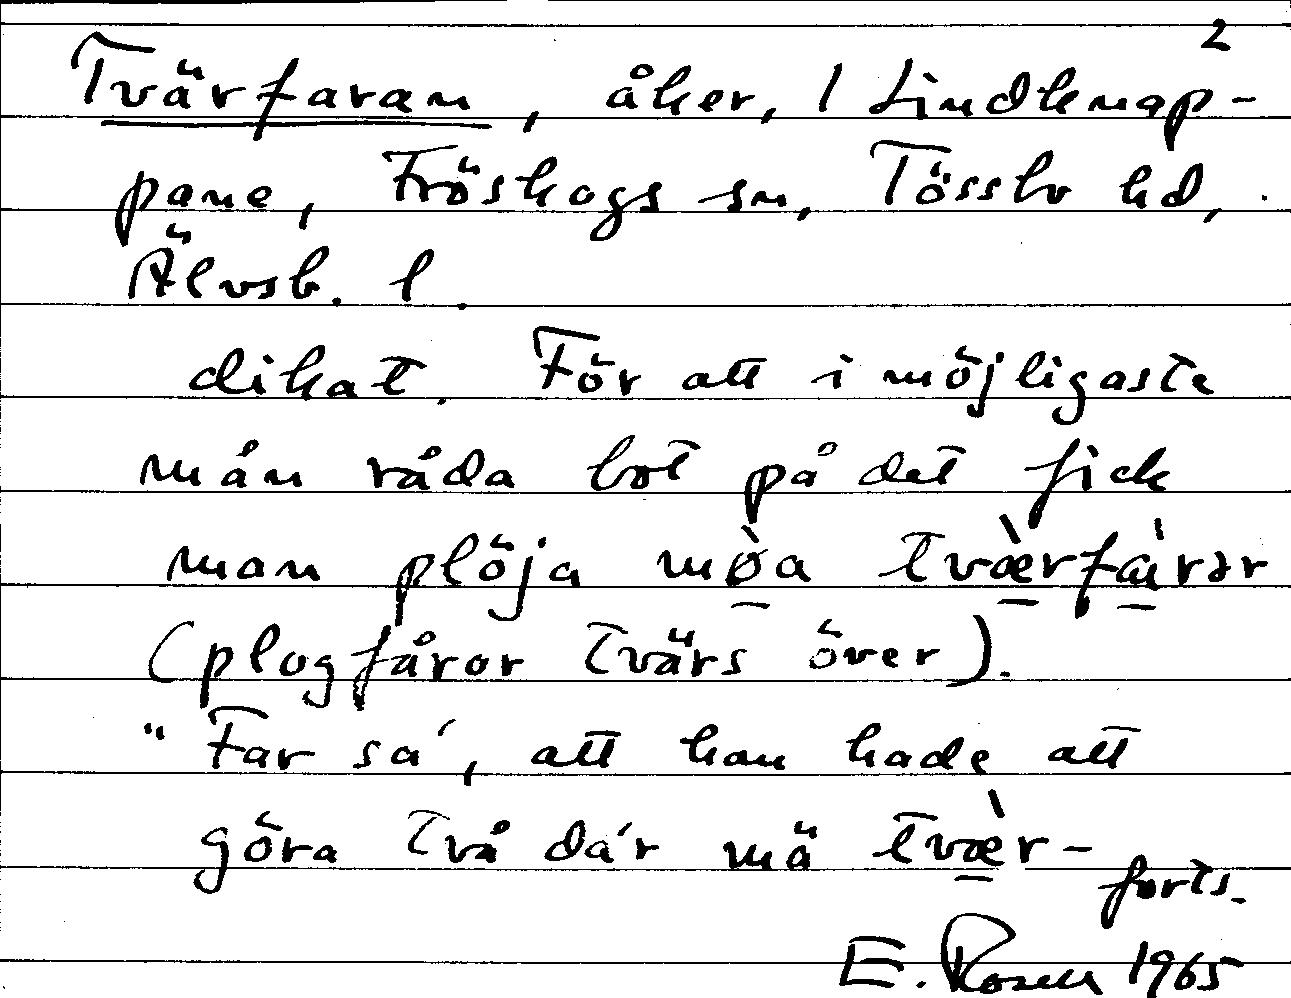 2
Tvärfaran, åker, 1 Lindknap-
pane, Fröskogs sn, Tössbo hd,
Älvsb. l.
dikat. För att i möjligaste
mån råda bot på det fick
man plöja mø̀a tvæ̀rfàrər
(plogfåror tvärs över).
"Far sa', att han hade att
göra två da'r mä tvæ̀r-
forts.
E. Rosell 1965